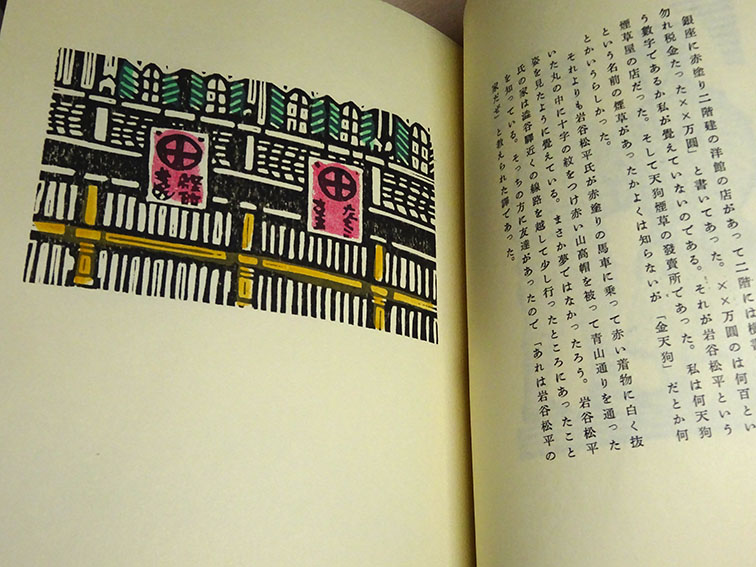 銀座に赤塗り二階建の洋館の店があって二階には横書
勿れ税金たった××万圓」と書いてあった。××万圓のは何百とい
う數字であるか私が覺えていないのである。それが岩谷松平という
煙草屋の店だった。そして天狗煙草の發賣所であった。私は何天狗
という名前の煙草があったかよくは知らないが「金天狗」だとか何
とかいうらしかった。
それよりも岩谷松平氏が赤塗りの馬車に乗って赤い着物に白く抜
いた丸の中に十字の紋をつけ赤い山高帽を被って青山通りを通った
姿を見たように覺えている。まさか夢ではなかったろう。岩谷松平
氏の家は澁谷驛近くの線路を越して少し行ったところにあったこと
を知っている。そっちの方に友達があったので「あれは岩谷松平の
家だぞ」と教えられた譯であった。
たばこ
鰹節